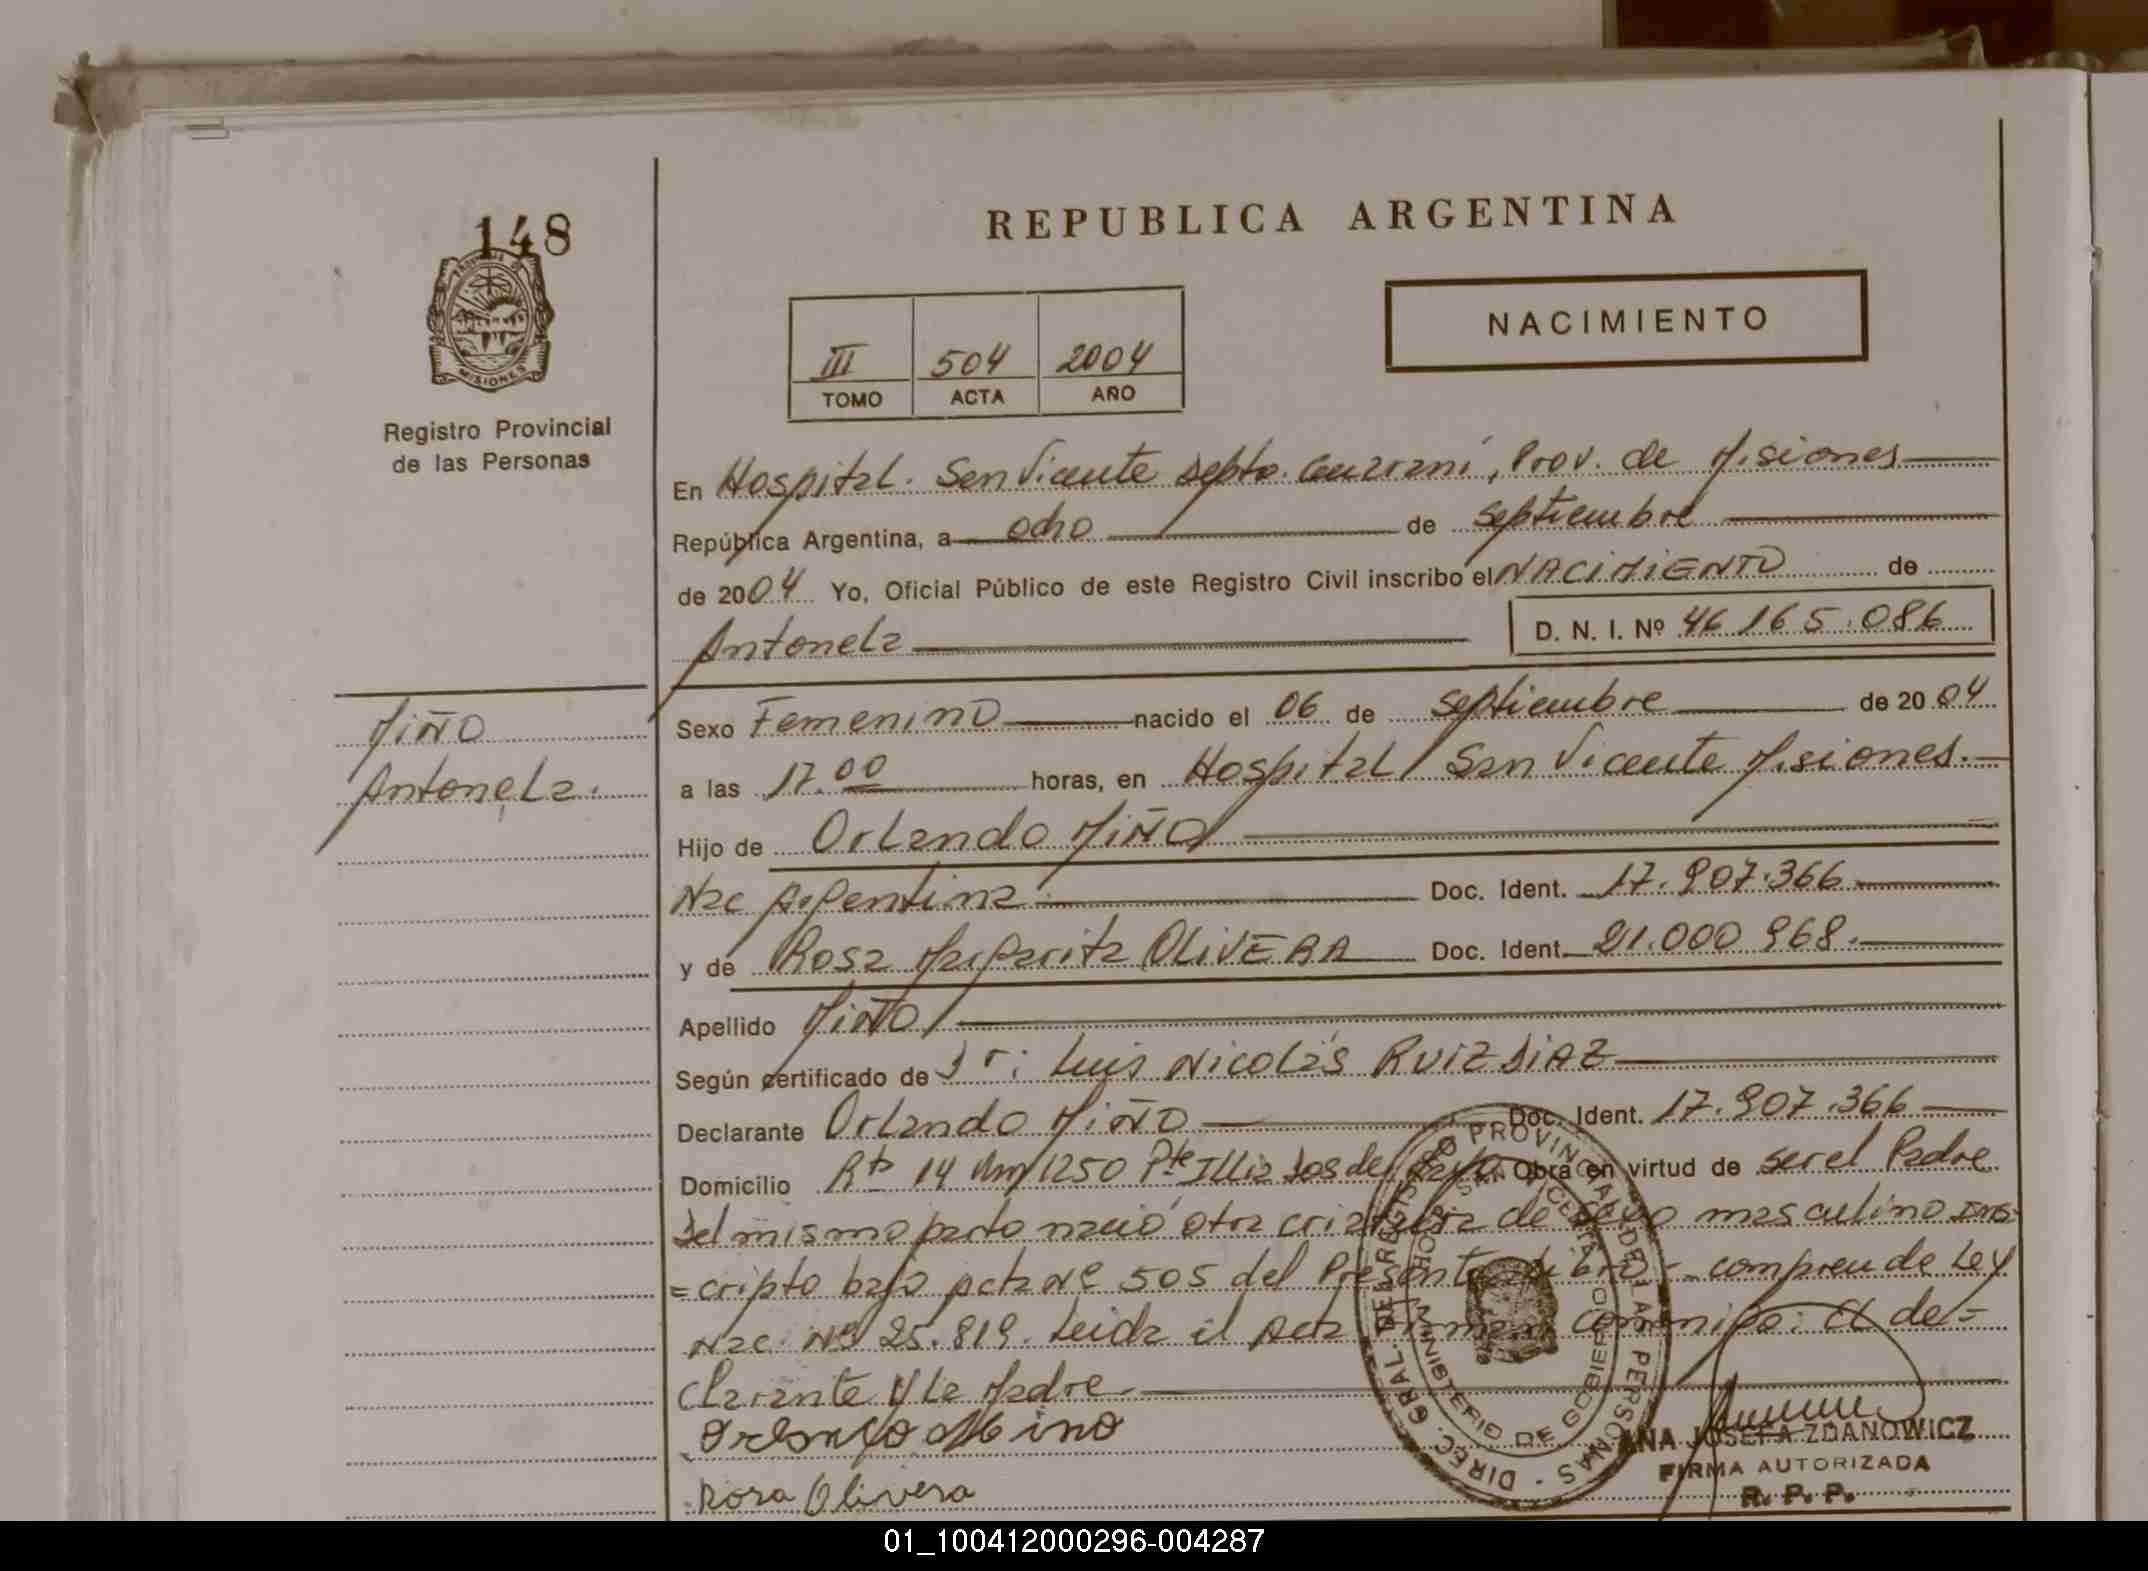 148
PROVINCIA DE
MISIONES
Registro Provincial
de las Personas
REPUBLICA ARGENTINA
NACIMIENTO
III 504 2004
TOMO ACTA AÑO
En Hospital. San Vicente Depto. Guaraní, Prov. de Misiones
República Argentina, a ocho de Septiembre
de 2004 Yo, Oficial Público de este Registro Civil inscribo el NACIMIENTO de
Antonela D. N. I. Nº 46.165.086
MIÑO
Antonela.
Sexo Femenino nacido el 06 de Septiembre de 2004
a las 17.00 horas, en Hospital San Vicente Misiones.
Hijo de Orlando MIÑO
Nac Argentina Doc. Ident. 17.907.366
y de Rosa Margarita OLIVERA Doc. Ident. 21.000 968.
Apellido MIÑO
Según certificado de Dr: Luis Nicolás RUIZ DIAZ
Declarante Orlando MIÑO Doc. Ident. 17.907.366
Domicilio Rta 14 Km 1250 Pte Illia Dos de Mayo Obra en virtud de ser el Padre
Del mismo parto nació otra criatura de sexo masculino Ins=
=cripto bajo acta Nº 505 del Presente Libro - comprende Ley
Nac. Nº 25.819. Leída el Acta firman conmigo: el de=
clarante y la Madre
Orlando Miño
Rosa Olivera
DIREC. GRAL. DEL REGISTRO PROVINCIAL DE LAS PERSONAS
MINISTERIO DE GOBIERNO
ANA JOSEFA ZDANOWICZ
FIRMA AUTORIZADA
R. P. P.
01_100412000296-004287